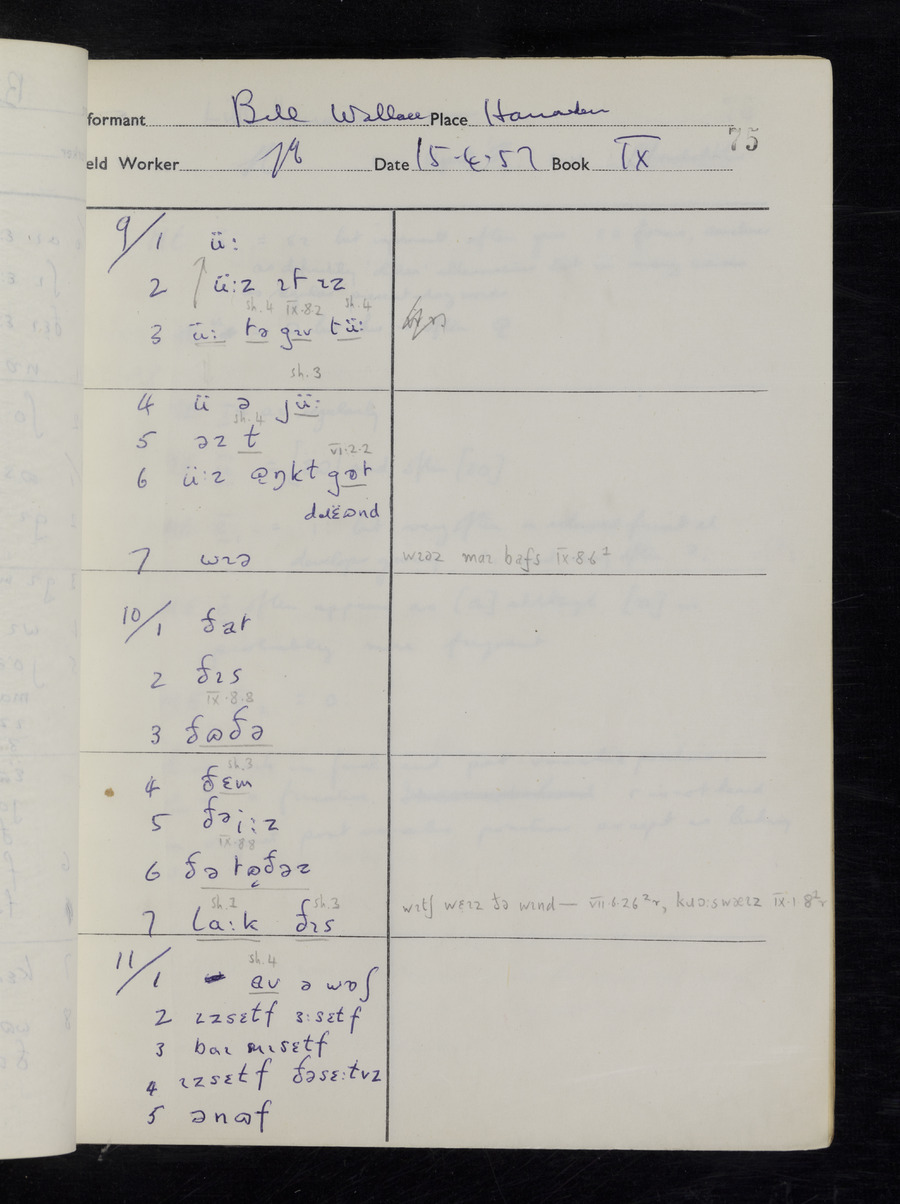 formant Bill Wallace Place
75
eld Worker Date 15·4·57 Book IX
9/1 ü:
2 ü:z ɪt ɪz
sh.4 IX·8·2 sh.4
3 ü: tə gɪv tü:
sh.3
4 ü ə jü:
sh.4
5 əz t
VI·2·2
6 ü:z
7 wɪə
wɪəz maɪ bafs IX·8 6²
10/1 ðat
2 ðɪs
IX·8·8
3 ðɷðə
sh.3
4 ðɛm
5 ðəi:z
IX·8·8
6 ðə tɷðəz
sh.2 sh.3
7 la:k ðɪs
wɪtʃ wɛɪz ðə wɪnd — VII·6·26²r, IX·1·8²r
11/1
sh.4
ɐv ə wɒʃ
2 ɪzsɛtf ɜ:sɛtf
3 baɪ mɪsɛtf
4 ɪzsɛtf ðəsɛ:tvz
5 ənɷf